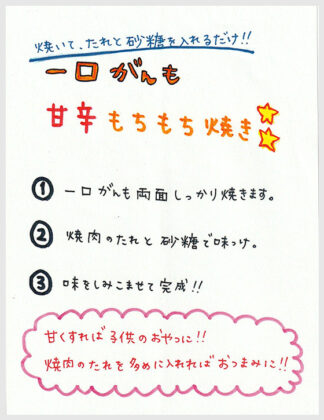 焼いて、たれと砂糖を入れるだけ!!
一口がんも
甘辛もちもち焼き
① 一口がんも両面しっかり焼きます。
② 焼肉のたれと砂糖で味つけ。
③ 味をしみこませて完成!!
甘くすれば子供のおやつに!!
焼肉のたれを多めに入れればおつまみに!!